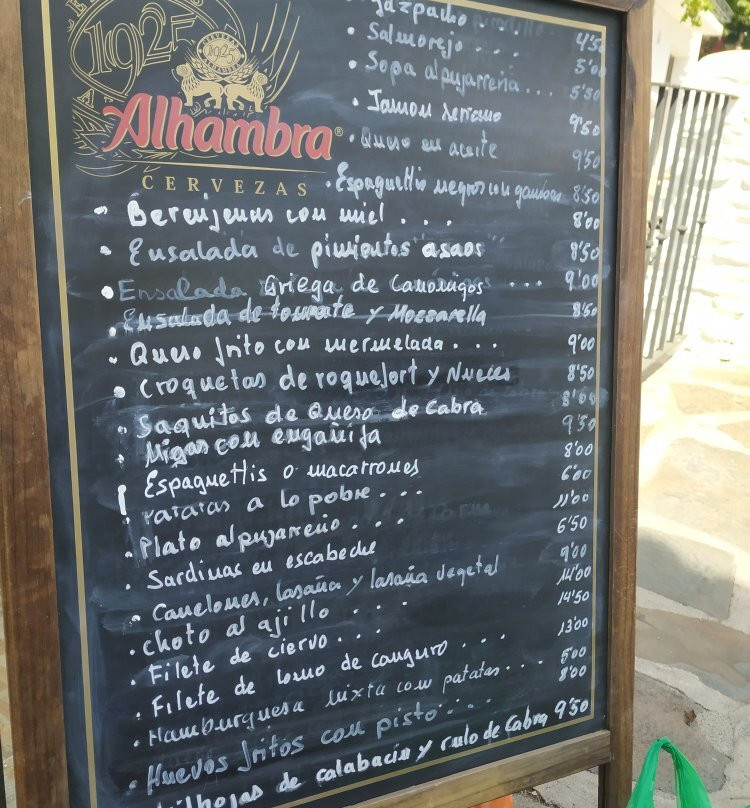 1925
Alhambra®
CERVEZAS
Gazpacho 4'50
• Salmorejo . . . 5'00
• Sopa alpujarreña . . . 5'50
• Jamon serrano 9'50
• Queso en aceite 9'50
• Espaguettis negros con gambas 8'50
• Berenjenas con miel . . . 8'00
• Ensalada de pimientos asaos 8'50
• Ensalada Griega de Canonigos . . . 9'00
• Ensalada de tomate y Mozzarella 8'50
• Queso frito con mermelada . . . 9'00
• Croquetas de roquefort y Nueces 8'50
• Saquitos de Queso de Cabra 8'00
• Migas con engañifa 9'50
Espaguettis o macarrones 8'00
Patatas a lo pobre . . . 6'00
• Plato alpujarreño . . . 11'00
• Sardinas en escabeche 6'50
• Canelones, lasaña y lasaña vegetal 9'00
• choto al ajillo . . . 14'00
• Filete de ciervo . . . 14'50
• Filete de lomo de canguro . . . 13'00
• Hamburguesa mixta con patatas . . . 5'00
• Huevos fritos con pisto . . . 8'00
milhojas de calabacin y rulo de Cabra 9'50